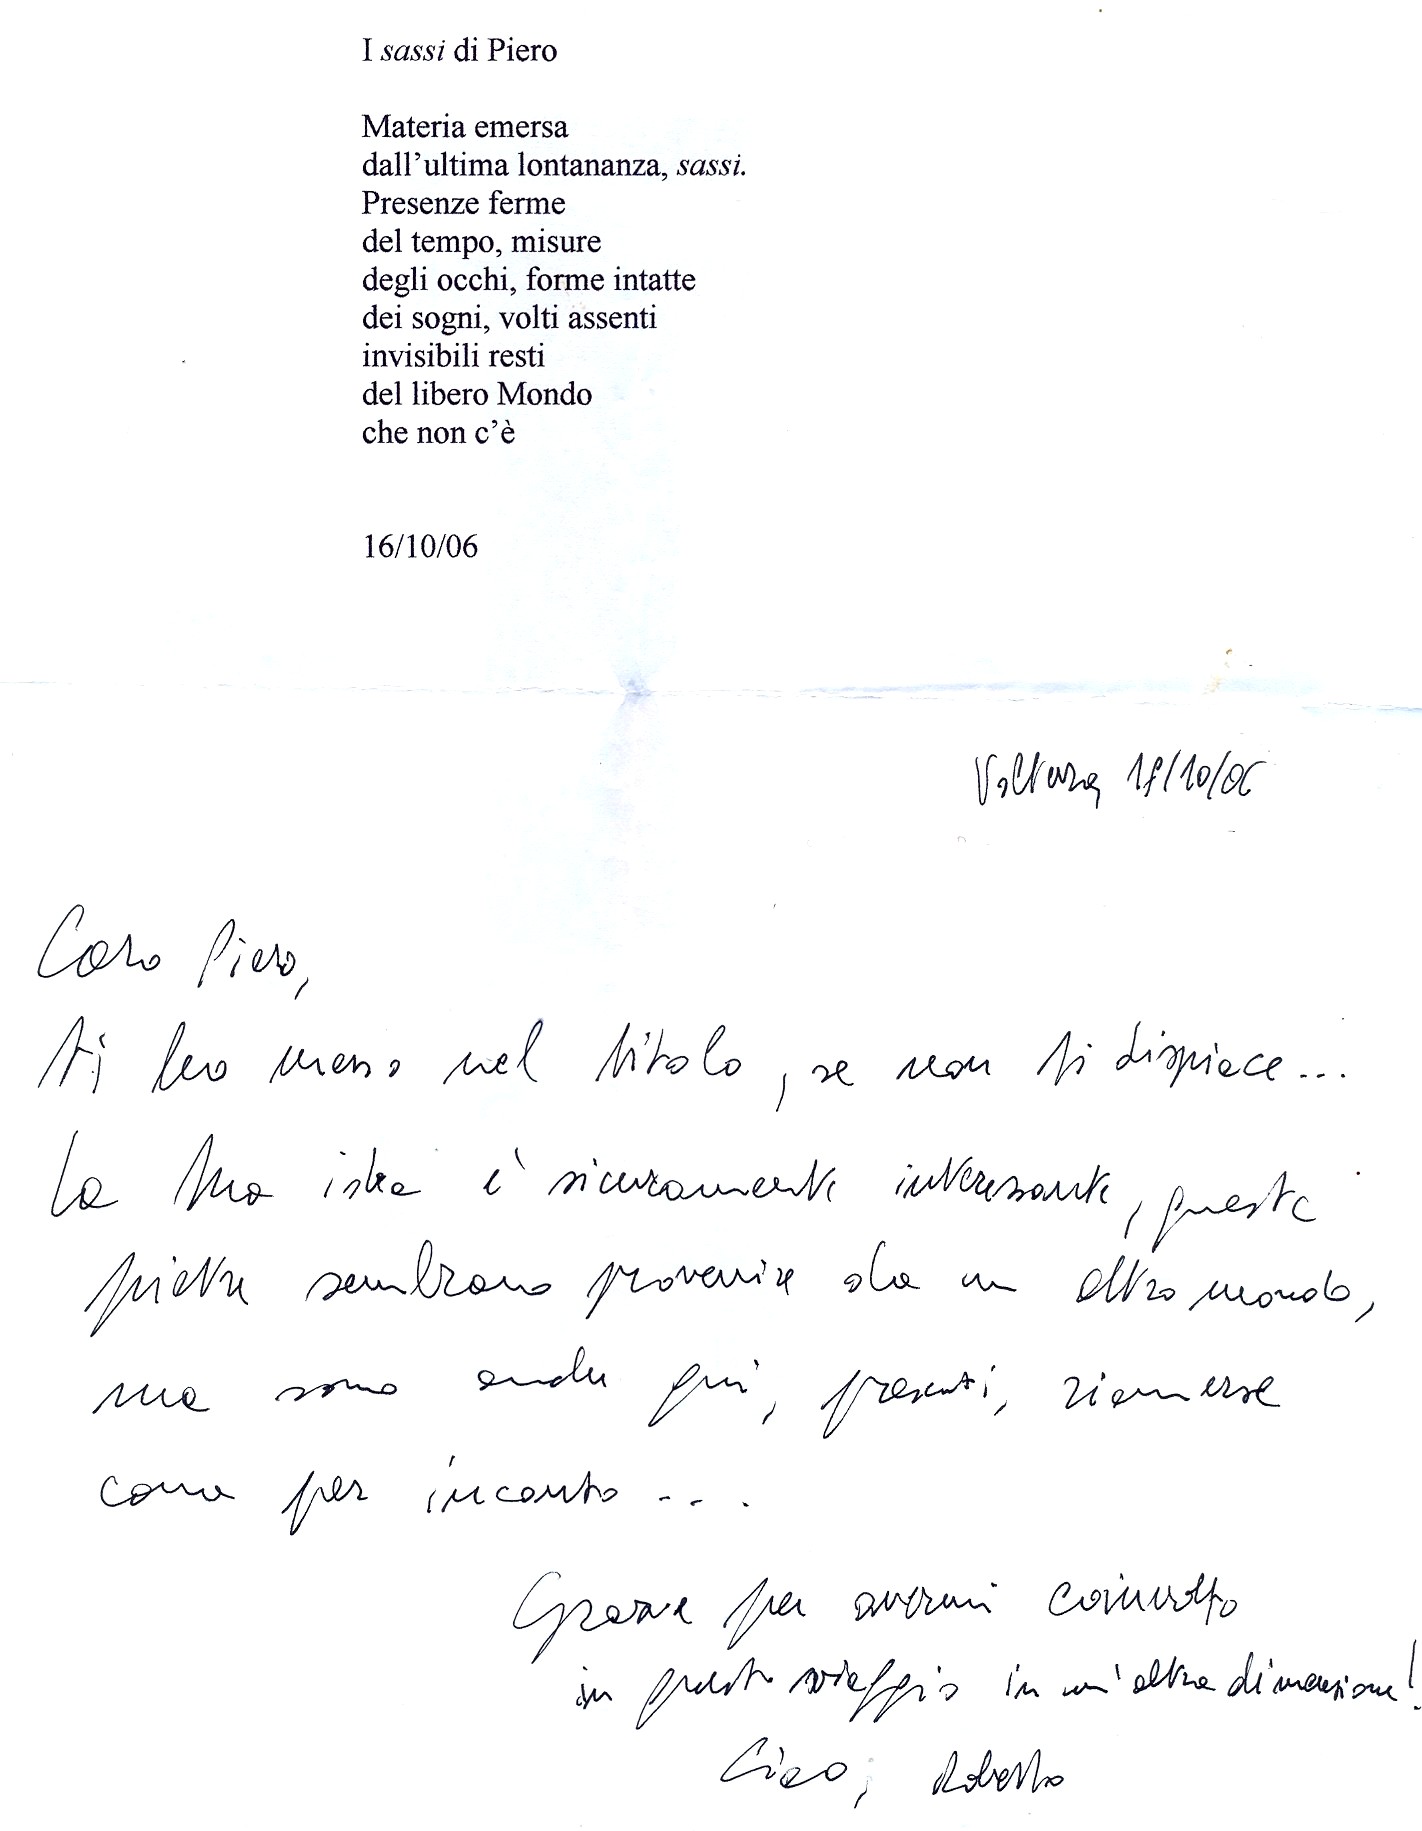 I sassi di Piero
Materia emersa
dall'ultima lontananza, sassi.
Presenze ferme
del tempo, misure
degli occhi, forme intatte
dei sogni, volti assenti
invisibili resti
del libero Mondo
che non c'è
16/10/06
Volterra, /10/06
Caro Piero,
ti ho messo nel titolo, se non ti dispiace...
La tua idea è sicuramente interessante, queste
pietre sembrano provenire da un altro mondo,
ma sono anche qui, presenti, riemerse
come per incanto...
Grazie per avermi coinvolto
in questo viaggio in un'altra dimensione!
Ciao, Roberto